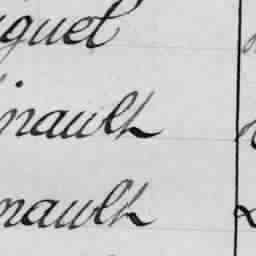 guet
inault
nault